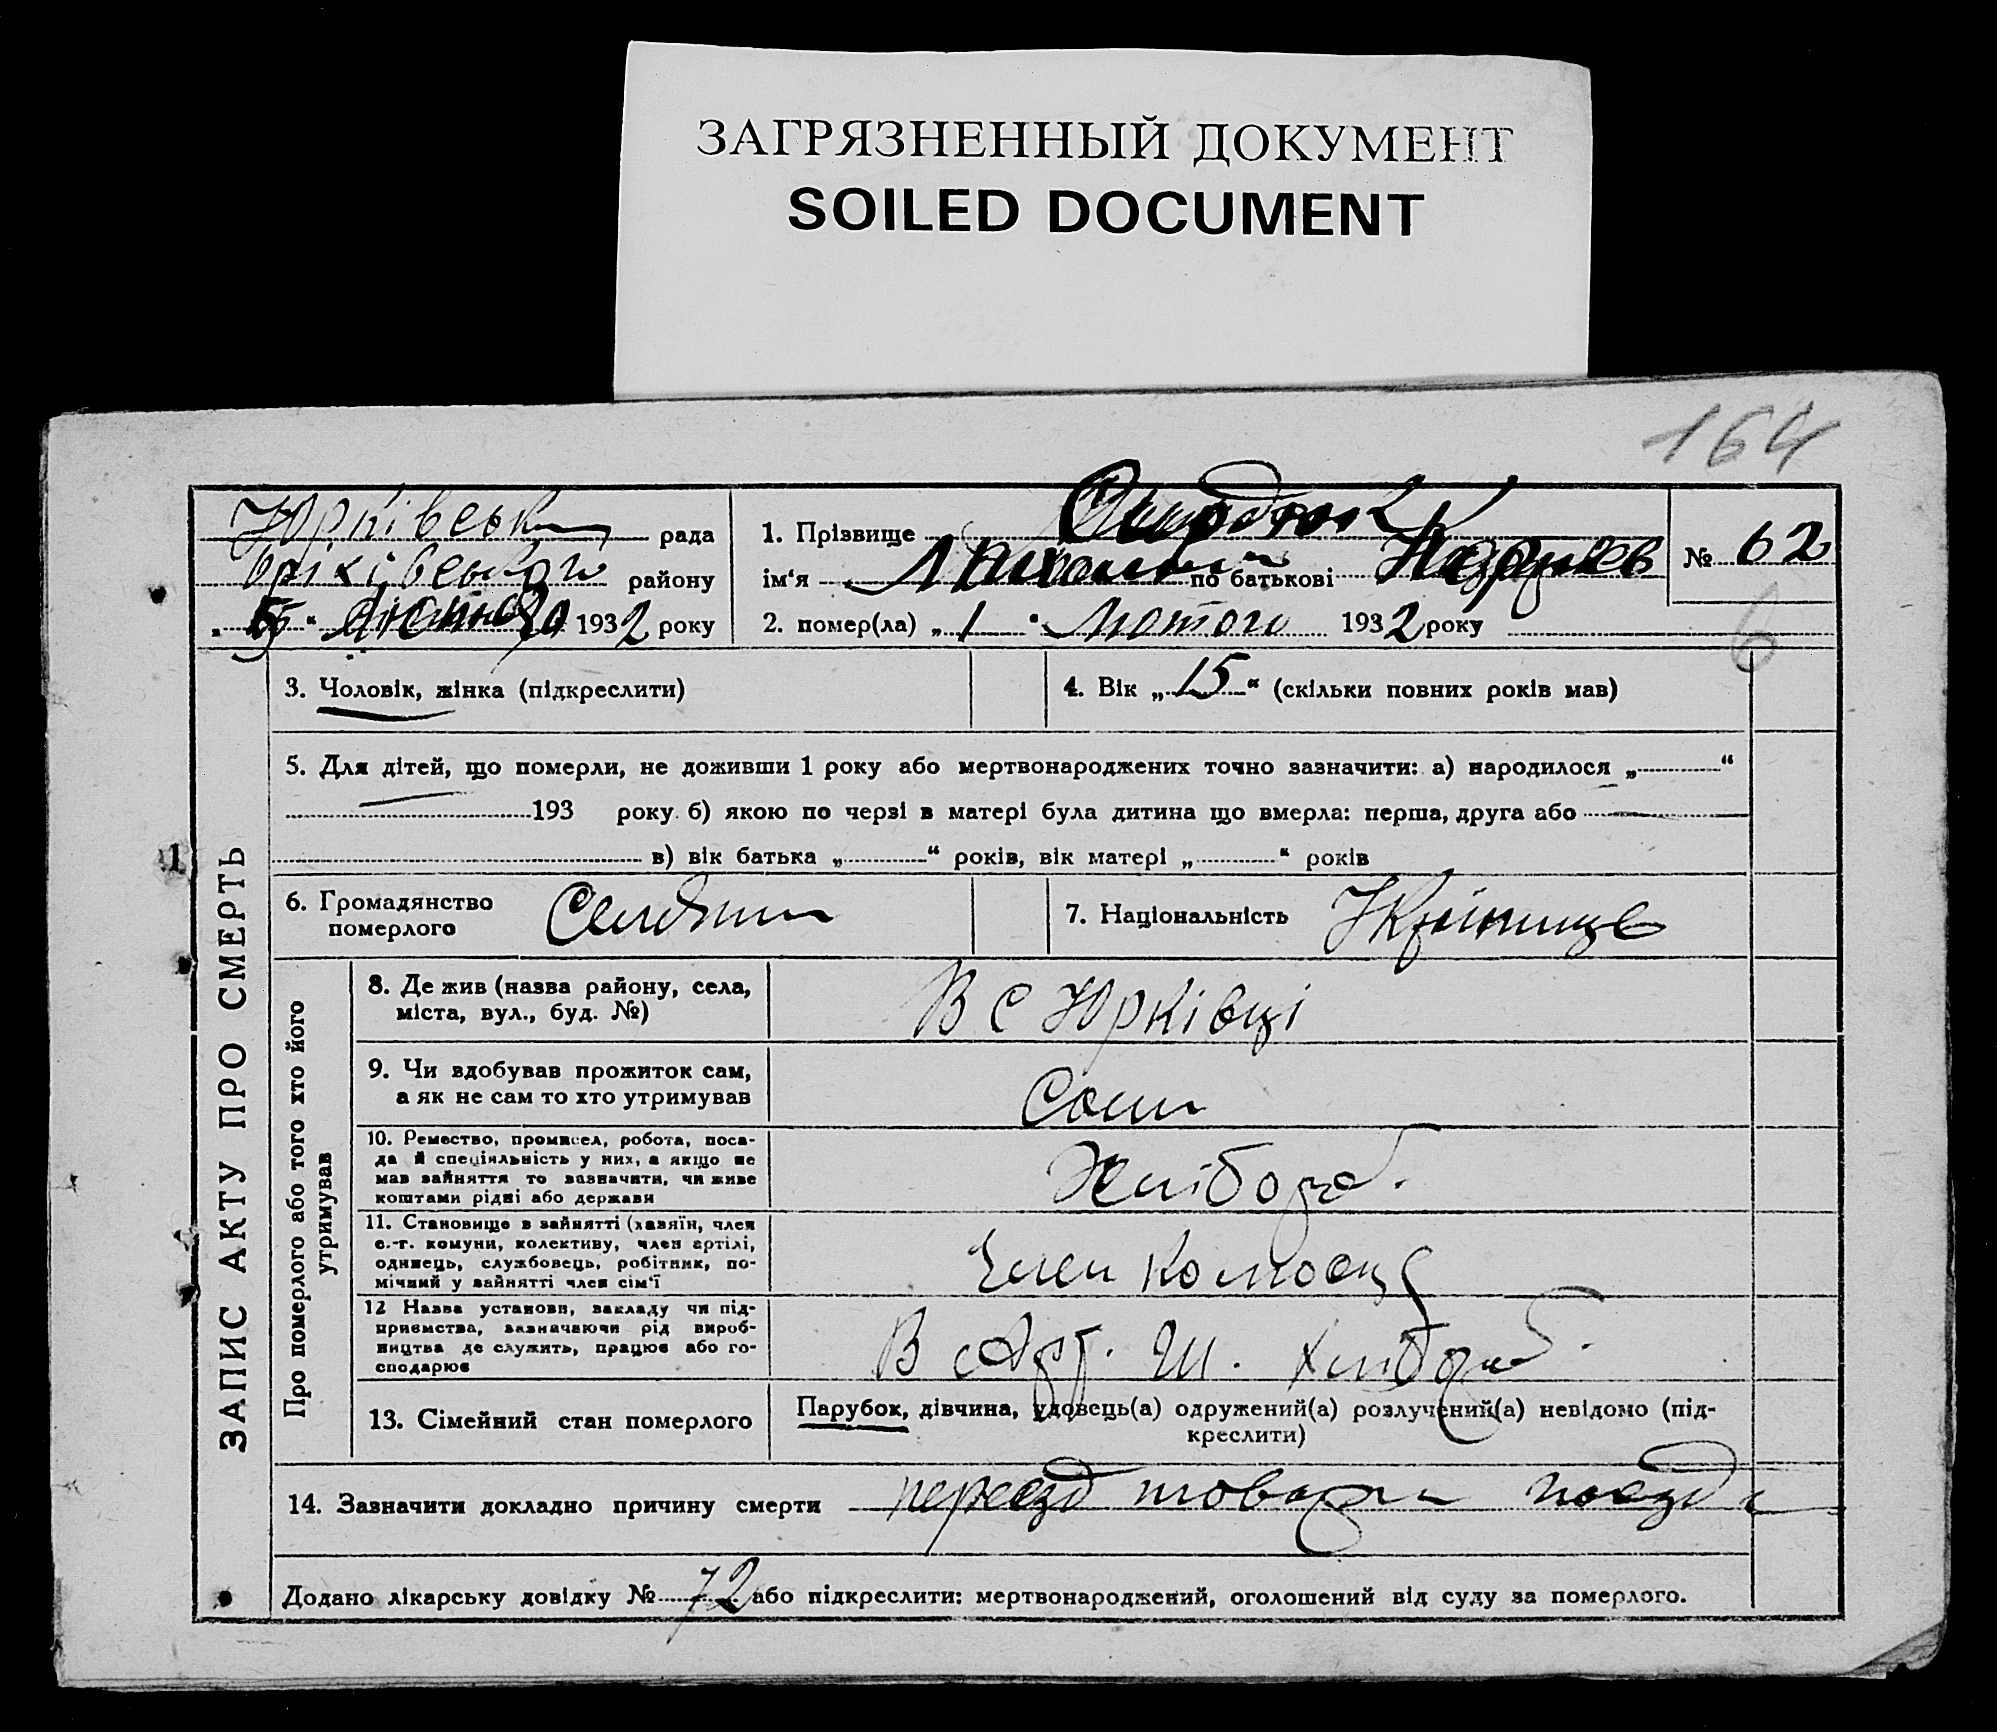 ЗАГРЯЗНЕННЫЙ ДОКУМЕНТ
SOILED DOCUMENT
164
Юрківськ рада
Оріхівського району
„ 5 “ лютого 1932 року
1. Прізвище
ім‘я по батькові
2. помер(ла) „ 1 “ Лютого 1932 року
№ 62
6
ЗАПИС АКТУ ПРО СМЕРТЬ
3. Чоловік, жінка (підкреслити)
4. Вік „ 15 “ (скільки повних років мав)
5. Для дітей, що померли, не доживши 1 року або мертвонароджених точно зазначити: а) народилося „ “
193 року б) якою по черзі в матері була дитина що вмерла: перша, друга або
в) вік батька „ “ років, вік матері „ “ років
6. Громадянство
померлого
7. Національність
Про померлого або того хто його
утримував
8. Де жив (назва району, села,
міста, вул., буд. №)
В с Юрківці
9. Чи вдобував прожиток сам,
а як не сам то хто утримував
Сам
10. Ремество, промисел, робота, поса-
да й спеціяльність у них, а якщо не
мав зайняття то зазначити, чи живе
коштами рідні або держави
Хлібороб.
11. Становище в зайнятті (хазяїн, член
с.-г. комуни, колективу, член артілі,
одинець, службовець, робітник, по-
мічний у зайнятті член сім‘ї
Член колгоспу
12 Назва установи, закладу чи під-
приємства, зазначаючи рід вироб-
ництва де служить, працює або го-
сподарює
В с Арт. Ш. хлібороб.
13. Сімейний стан померлого
Парубок, дівчина, удовець(а) одружений(а) розлучений(а) невідомо (під-
креслити)
14. Зазначити докладно причину смерти
Додано лікарську довідку № 72 або підкреслити: мертвонароджений, оголошений від суду за померлого.